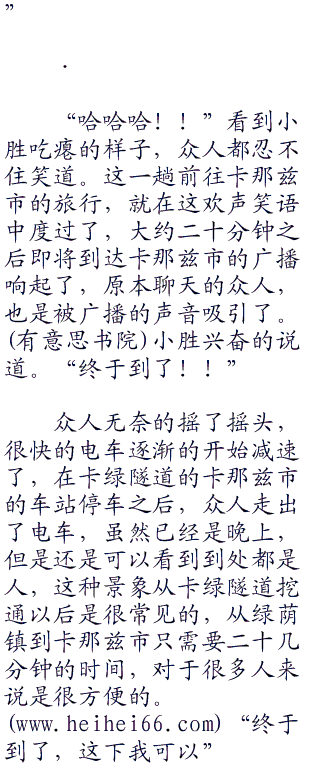 ”
.
“哈哈哈！！”看到小
胜吃瘪的样子，众人都忍不
住笑道。这一趟前往卡那兹
市的旅行，就在这欢声笑语
中度过了，大约二十分钟之
后即将到达卡那兹市的广播
响起了，原本聊天的众人，
也是被广播的声音吸引了。
(有意思书院)小胜兴奋的说
道。“终于到了！！”
众人无奈的摇了摇头，
很快的电车逐渐的开始减速
了，在卡绿隧道的卡那兹市
的车站停车之后，众人走出
了电车，虽然已经是晚上，
但是还是可以看到到处都是
人，这种景象从卡绿隧道挖
通以后是很常见的，从绿荫
镇到卡那兹市只需要二十几
分钟的时间，对于很多人来
说是很方便的。
(www.heihei66.com)“终于
到了，这下我可以”